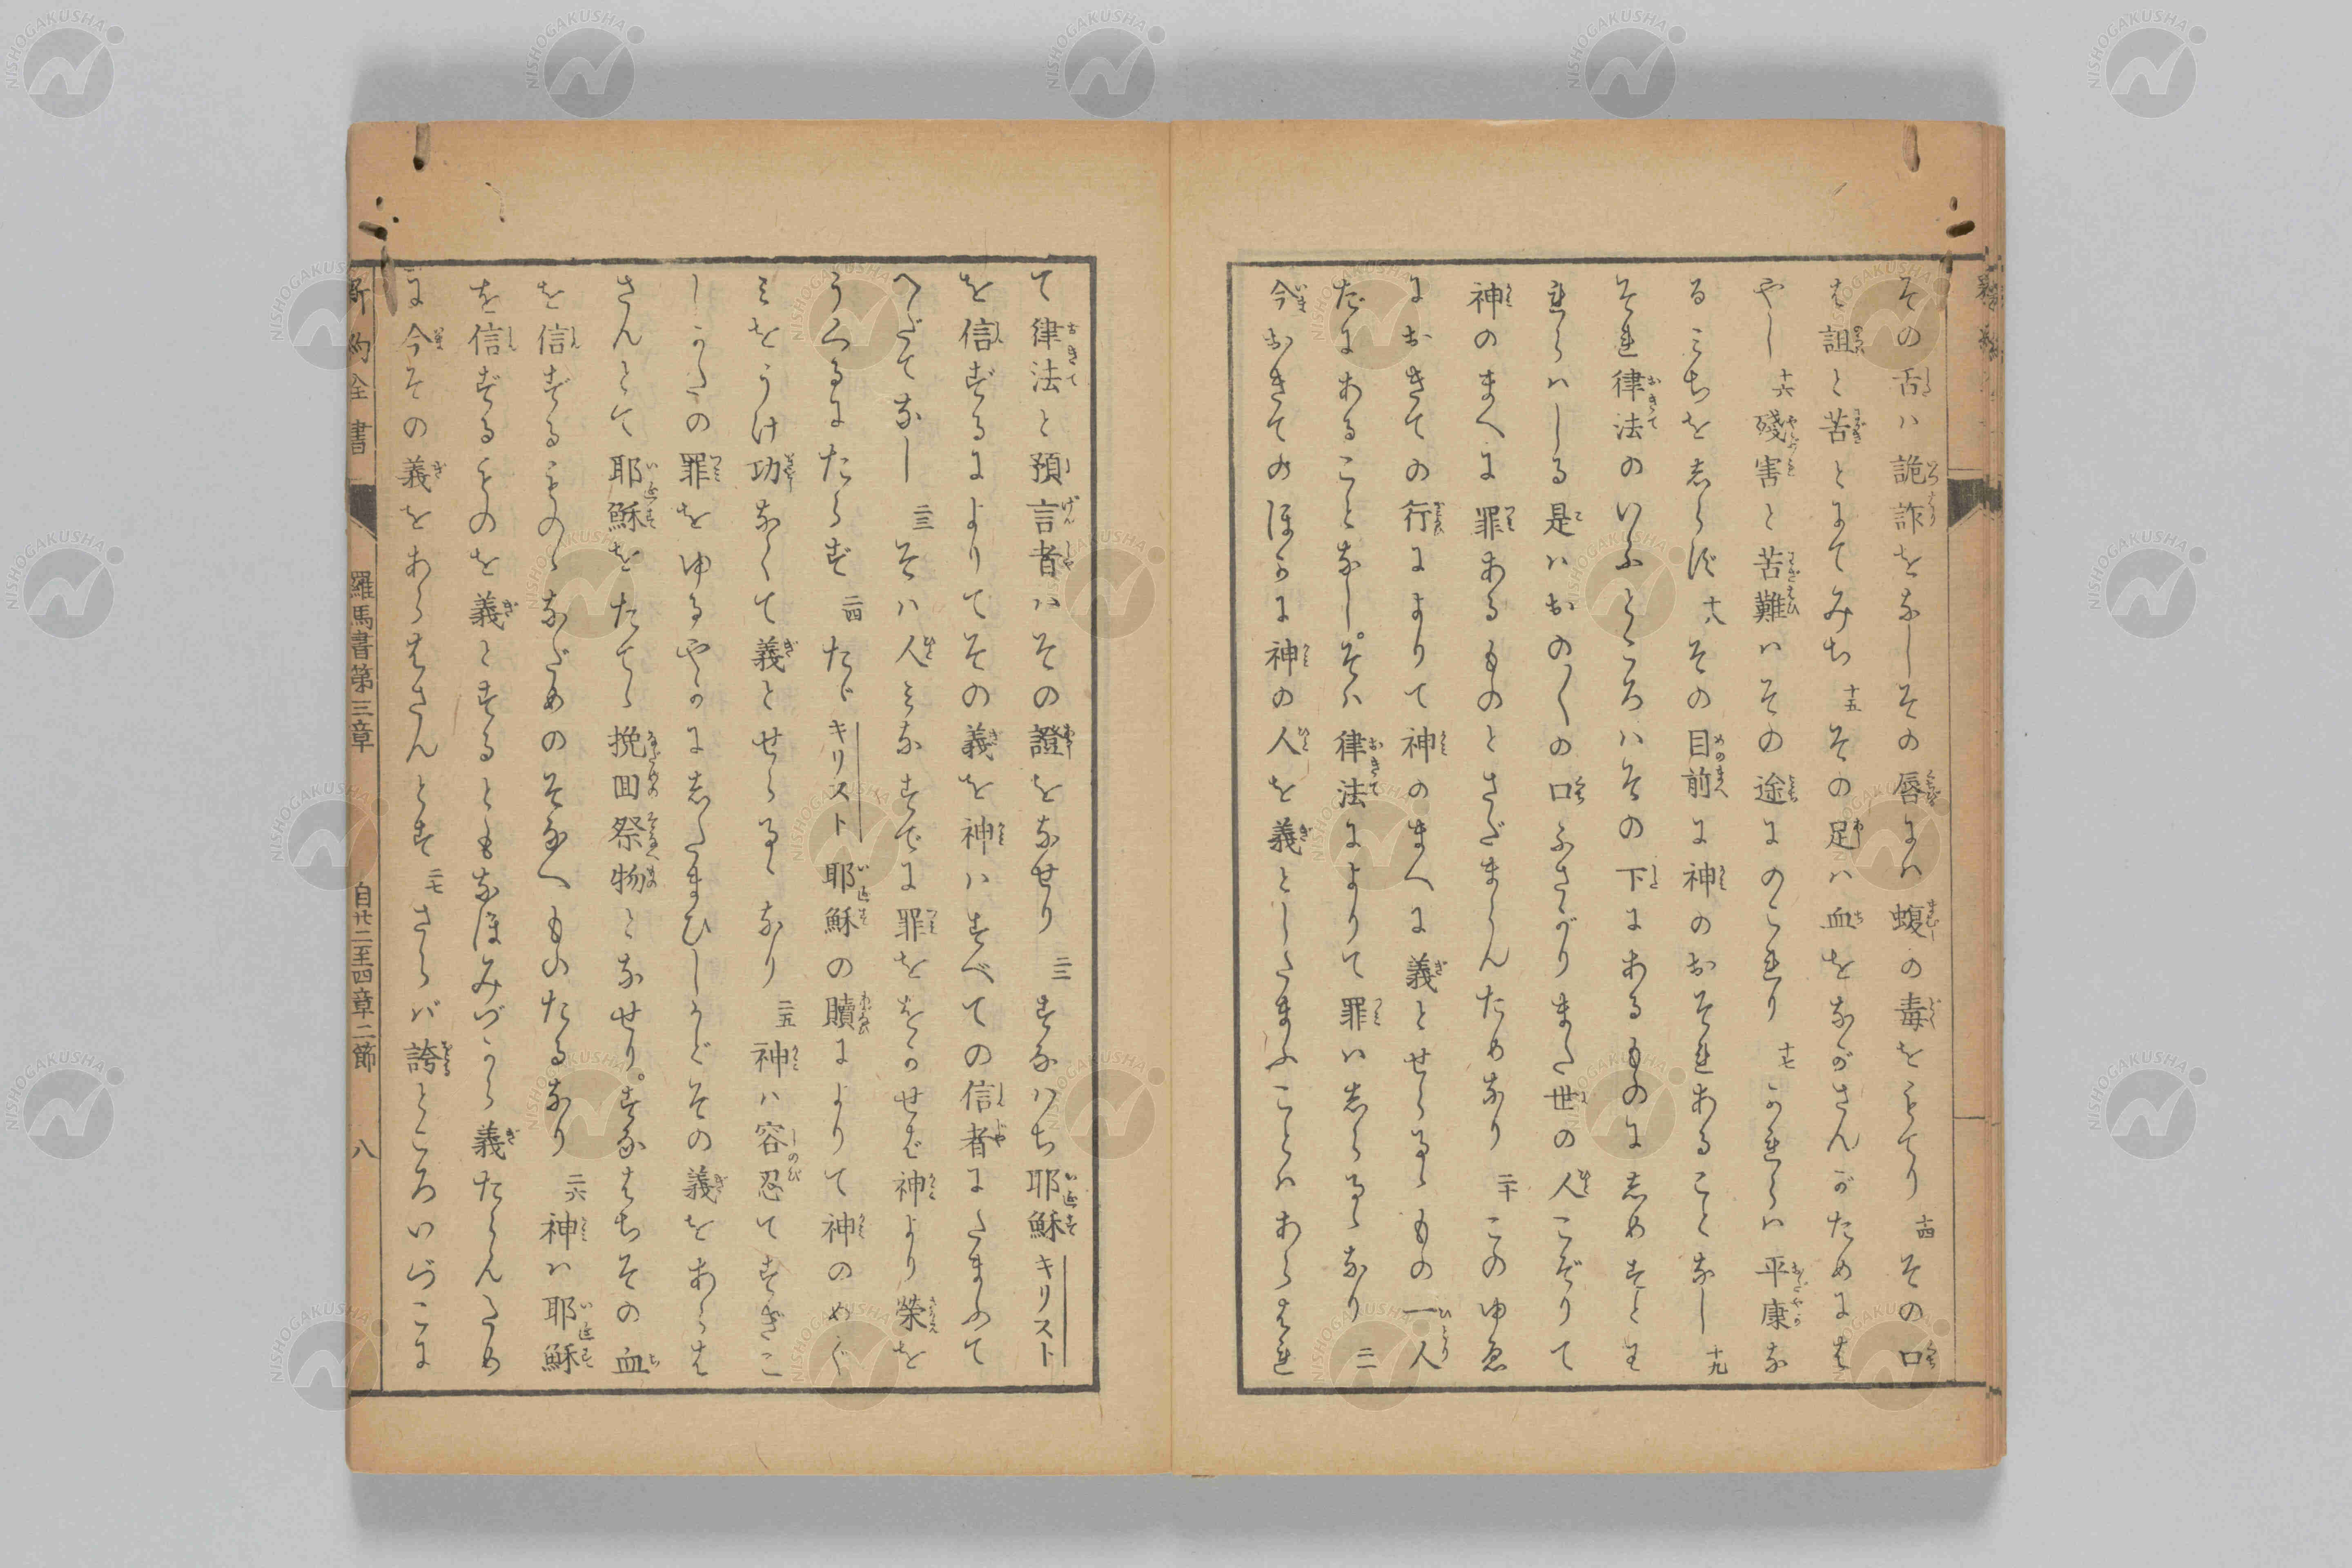 その舌ハ詭詐をなしその唇にハ蝮の毒をもてり 十四 その口
は詛と苦とにてみち 十五 その足ハ血をながさんがためには
やし 十六 殘害と苦難ハその途にのこれり 十七 かれらハ平康な
るみちをしらず 十八 その目前に神のおそれあることなし 十九
それ律法のいふところハその下にあるものにしめすとわ
れらハしる是ハおの〳〵の口ふさがりまた世の人こぞりて
神のまへに罪あるものとさだまらんためなり 二十 このゆゑ
におきての行によりて神のまへに義とせらるゝもの一人
だにあることなし。そハ律法によりて罪ハしらるゝなり 二一
今おきてのほかに神の人を義としたまふことハあらはれ
て律法と預言者ハその證をなせり 二二 すなハち耶穌キリスト
を信ずるによりてその義を神ハすべての信者にたまふて
へだてなし 二三 そハ人みなすでに罪ををかせば神より榮を
うくるにたらず 二四 たゞキリスト耶穌の贖によりて神のめぐ
みをうけ功なくて義とせらるゝなり 二五 神ハ容忍てすぎこ
しかたの罪をゆるやかにしたまひしかどその義をあらは
さんとて耶穌をたてゝ挽回祭物となせり。すなはちその血
を信ずるものゝなだめのそなへものたるなり 二六 神ハ耶穌
を信ずるものを義とするともなほみづから義たらんため
に今その義をあらはさんとす 二七 さらバ誇ところいづこに
新約全書 羅馬書第三章 自廿二至四章二節 八
NISHOGAKUSHA